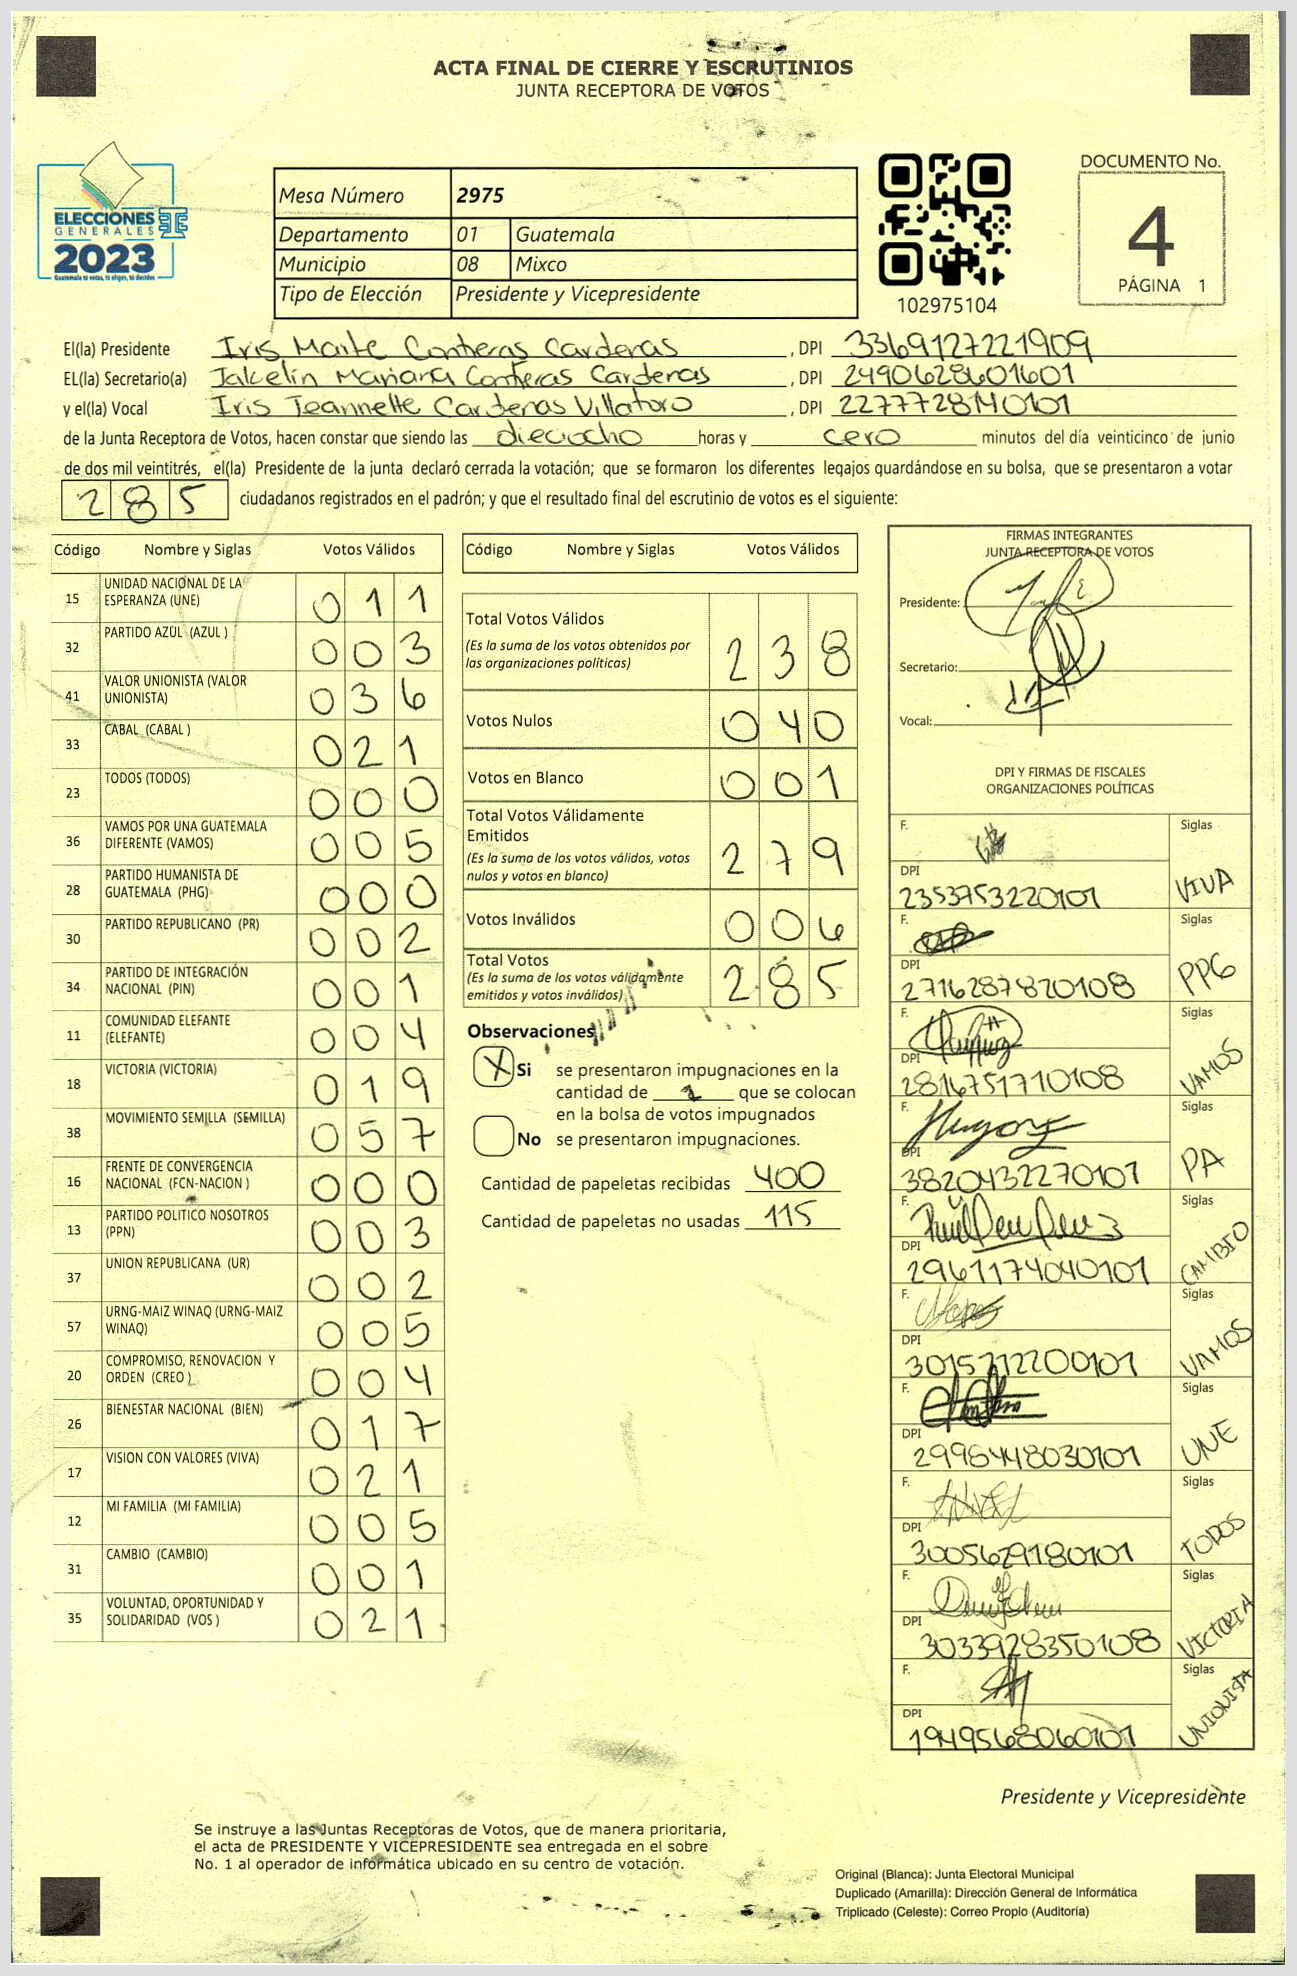 ACTA FINAL DE CIERRE Y ESCRUTINIOS
JUNTA RECEPTORA DE VOTOS
ELECCIONES
GENERALES
2023
Guatemala tú votas, tú eliges, tú decides
Mesa Número 2975
Departamento 01 Guatemala
Municipio 08 Mixco
Tipo de Elección Presidente y Vicepresidente
102975104
DOCUMENTO No.
4
PÁGINA 1
El(la) Presidente Iris Maite Contreras Cardenas, DPI 3369127221909
EL(la) Secretario(a) Jakelin Mariana Contreras Cardenas, DPI 2490628601601
y el(la) Vocal Iris Jeannette Cardenas Villatoro, DPI 2277728140101
de la Junta Receptora de Votos, hacen constar que siendo las dieciocho horas y cero minutos del día veinticinco de junio
de dos mil veintitrés, el(la) Presidente de la junta declaró cerrada la votación; que se formaron los diferentes legajos quardándose en su bolsa, que se presentaron a votar
285 ciudadanos registrados en el padrón; y que el resultado final del escrutinio de votos es el siguiente:
Código Nombre y Siglas Votos Válidos
15 UNIDAD NACIONAL DE LA ESPERANZA (UNE) 011
32 PARTIDO AZUL (AZUL ) 003
41 VALOR UNIONISTA (VALOR UNIONISTA) 036
33 CABAL (CABAL ) 021
23 TODOS (TODOS) 000
36 VAMOS POR UNA GUATEMALA DIFERENTE (VAMOS) 005
28 PARTIDO HUMANISTA DE GUATEMALA (PHG) 000
30 PARTIDO REPUBLICANO (PR) 002
34 PARTIDO DE INTEGRACIÓN NACIONAL (PIN) 001
11 COMUNIDAD ELEFANTE (ELEFANTE) 004
18 VICTORIA (VICTORIA) 019
38 MOVIMIENTO SEMILLA (SEMILLA) 057
16 FRENTE DE CONVERGENCIA NACIONAL (FCN-NACION ) 000
13 PARTIDO POLITICO NOSOTROS (PPN) 003
37 UNION REPUBLICANA (UR) 002
57 URNG-MAIZ WINAQ (URNG-MAIZ WINAQ) 005
20 COMPROMISO, RENOVACION Y ORDEN (CREO ) 004
26 BIENESTAR NACIONAL (BIEN) 017
17 VISION CON VALORES (VIVA) 021
12 MI FAMILIA (MI FAMILIA) 005
31 CAMBIO (CAMBIO) 001
35 VOLUNTAD, OPORTUNIDAD Y SOLIDARIDAD (VOS ) 021
Código Nombre y Siglas Votos Válidos
Total Votos Válidos 238
(Es la suma de los votos obtenidos por
las organizaciones políticas)
Votos Nulos 040
Votos en Blanco 001
Total Votos Válidamente
Emitidos 279
(Es la suma de los votos válidos, votos
nulos y votos en blanco)
Votos Inválidos 006
Total Votos 285
(Es la suma de los votos válidamente
emitidos y votos inválidos)
Observaciones
X Si se presentaron impugnaciones en la
cantidad de 1 que se colocan
en la bolsa de votos impugnados
No se presentaron impugnaciones.
Cantidad de papeletas recibidas 400
Cantidad de papeletas no usadas 115
FIRMAS INTEGRANTES
JUNTA RECEPTORA DE VOTOS
Presidente:
Secretario:
Vocal:
DPI Y FIRMAS DE FISCALES
ORGANIZACIONES POLÍTICAS
F. Siglas
DPI 2353753220101 VIVA
F. Siglas
DPI 2716287820108 PPG
F. Siglas
DPI 2816751710108 VAMOS
F. Siglas
DPI 3820432270101 PA
F. Siglas
DPI 2961174040101 CAMBIO
F. Siglas
DPI 3015212200101 VAMOS
F. Siglas
DPI 2998448030101 UNE
F. Siglas
DPI 3005629180101 TODOS
F. Siglas
DPI 3033928350108 VICTORIA
F. Siglas
DPI 1949568060101 UNIONISTA
Presidente y Vicepresidente
Se instruye a las Juntas Receptoras de Votos, que de manera prioritaria,
el acta de PRESIDENTE Y VICEPRESIDENTE sea entregada en el sobre
No. 1 al operador de informática ubicado en su centro de votación.
Original (Blanca): Junta Electoral Municipal
Duplicado (Amarilla): Dirección General de Informática
Triplicado (Celeste): Correo Propio (Auditoría)